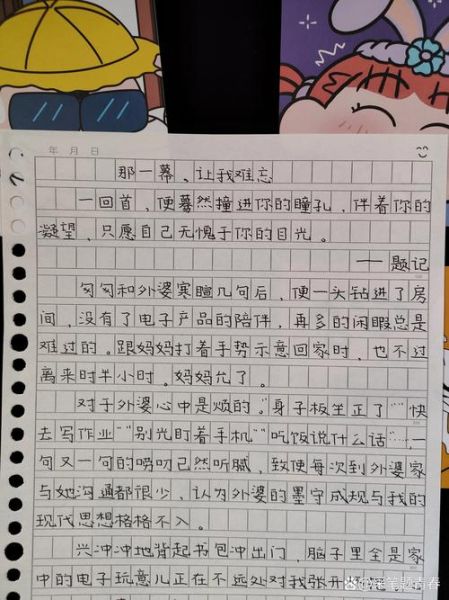 年 月 日
那一幕，让我难忘
一回首，便蓦然撞进你的瞳孔，伴着你的
凝望，只愿自己无愧于你的目光。
——题记
匆匆和外婆寒暄几句后，便一头钻进了房
间，没有了电子产品的陪伴，再多的闲暇总是
难过的。跟妈妈打着手势示意回家时，也不过
离来时半小时。妈妈允了。
对于外婆心中是烦的。“身子板坐正了”“快
去写作业”“别光盯着手机”“吃饭说什么话”……一
句又一句的唠叨已然听腻，致使每次到外婆家
与她沟通都很少，认为外婆的墨守成规与我的
现代思想格格不入。
兴冲冲地背起书包冲出门，脑子里全是家
中的电子玩意儿正在不远处对我张开
笔题青春